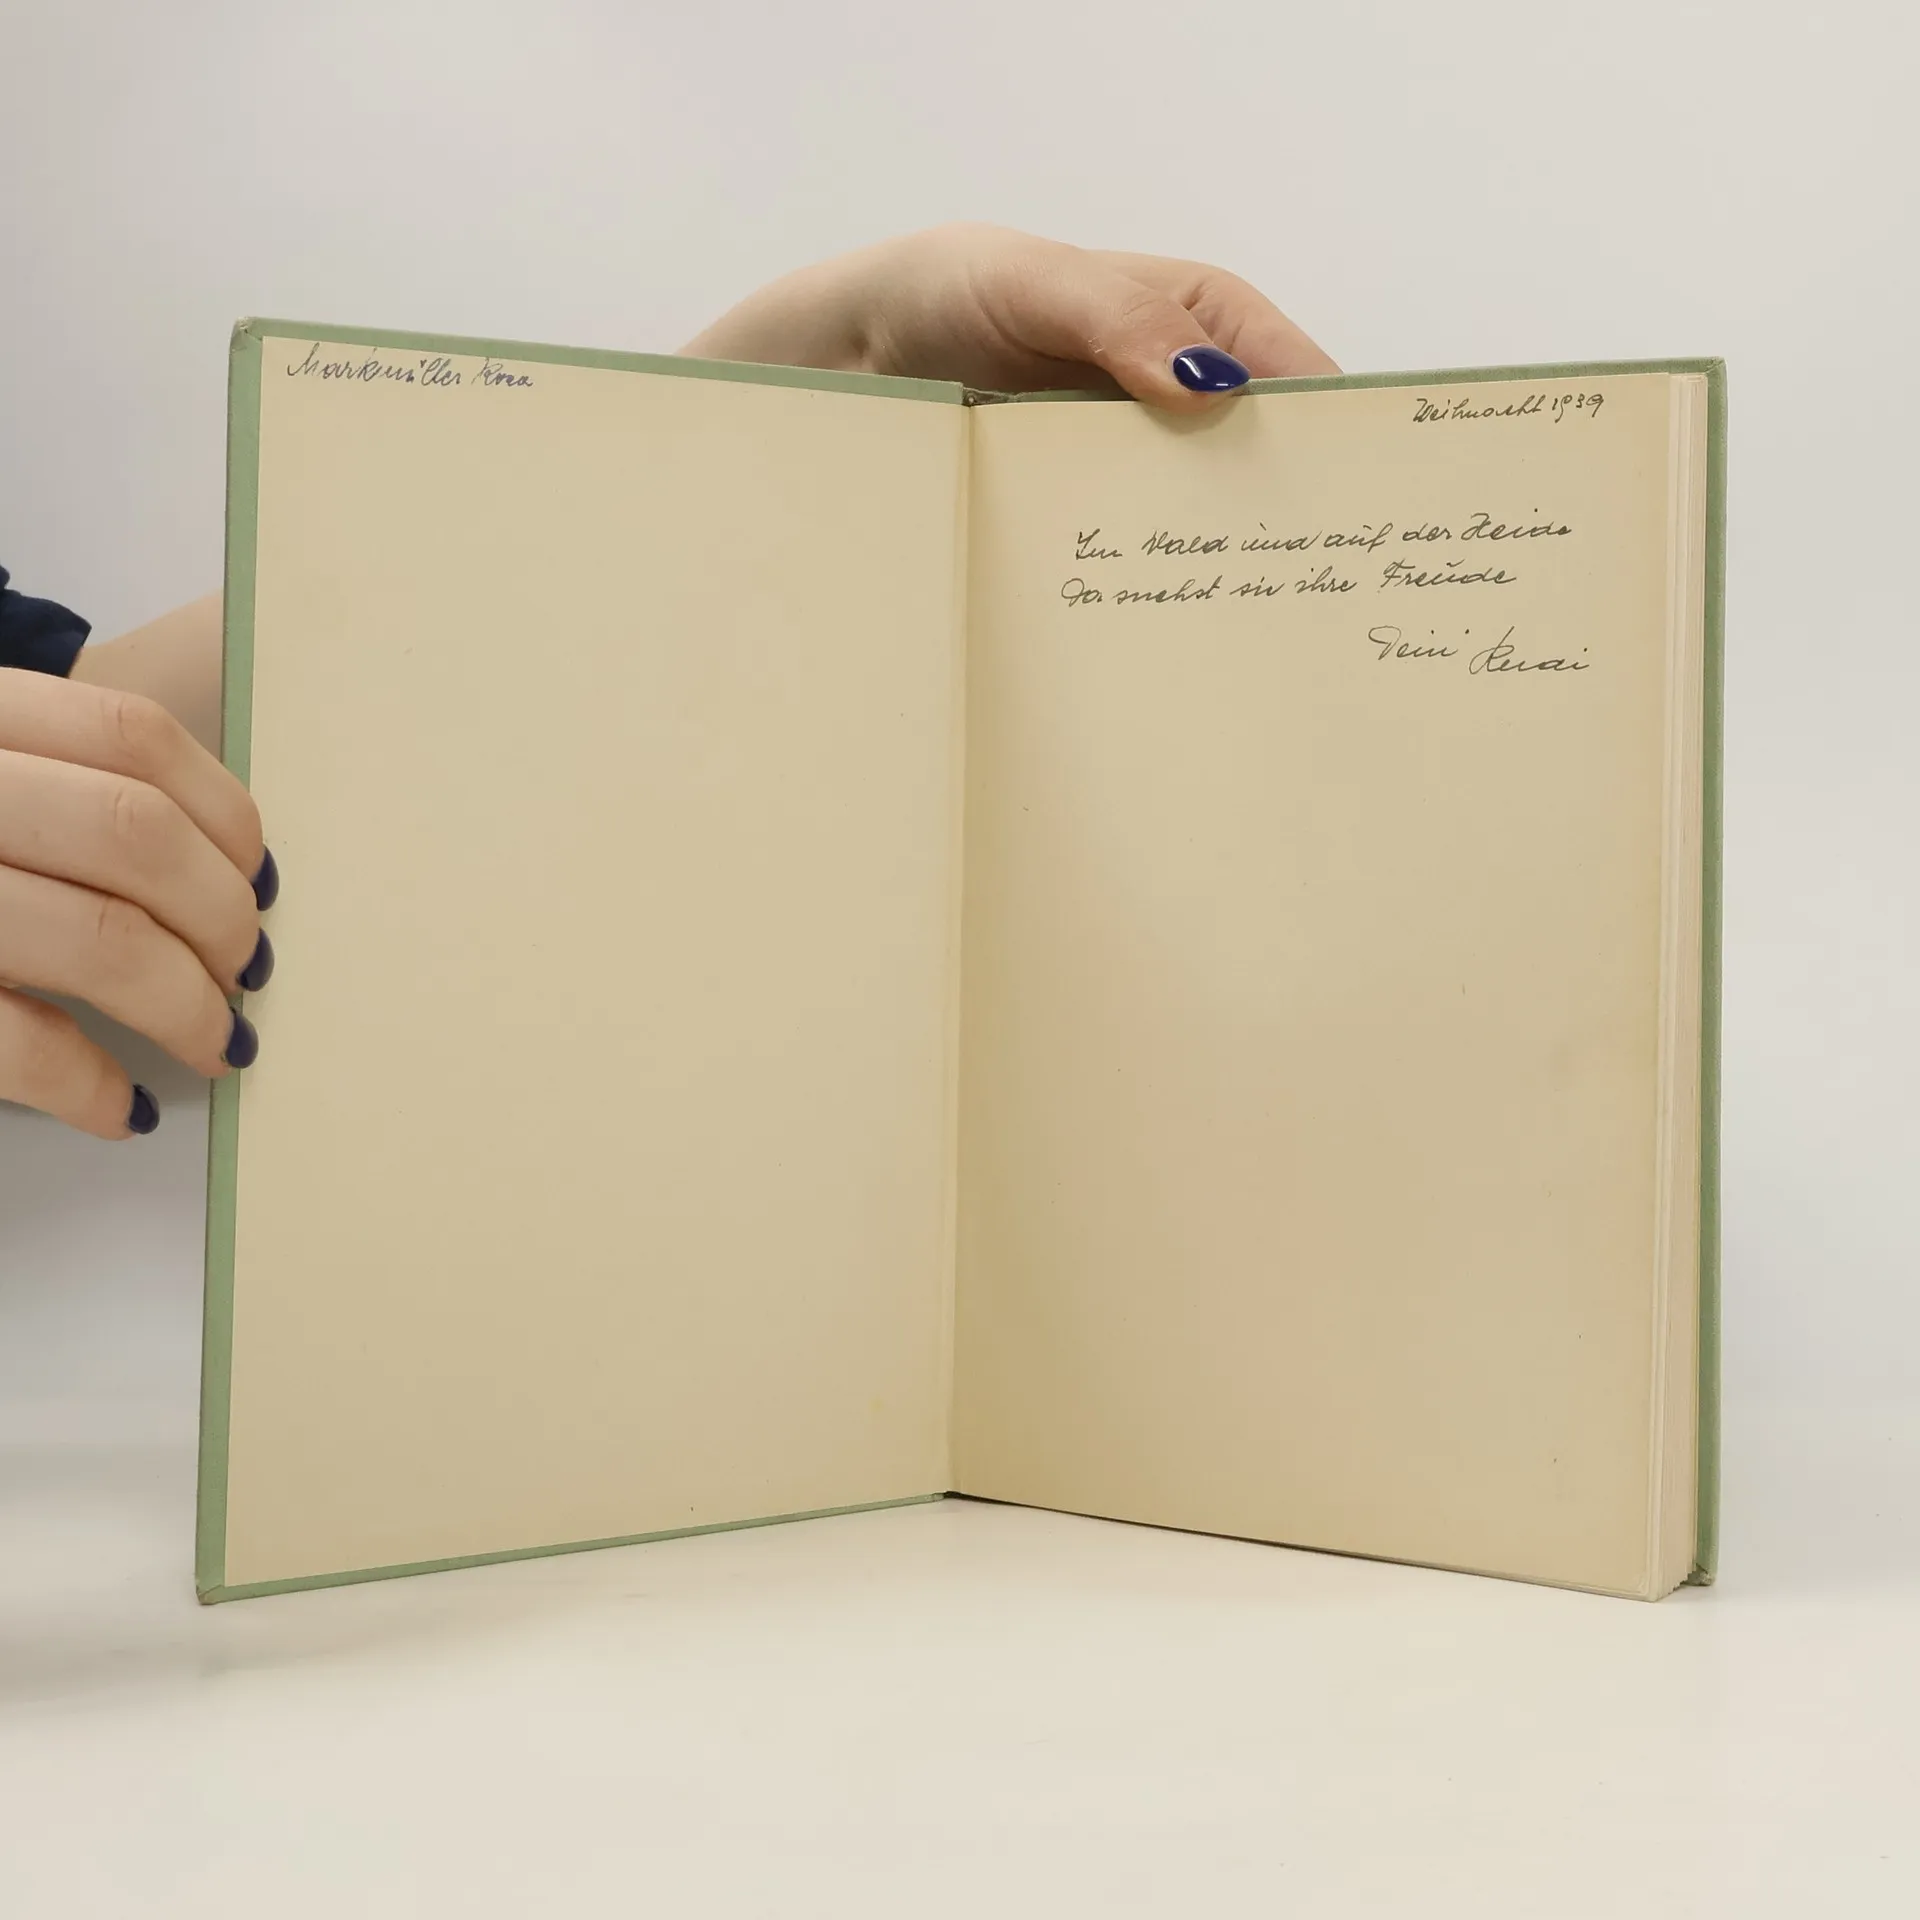 Markmüller Rosa
Weihnacht 1939
Im Wald und auf der Heide
Da suchst sie ihre Freude
Dein